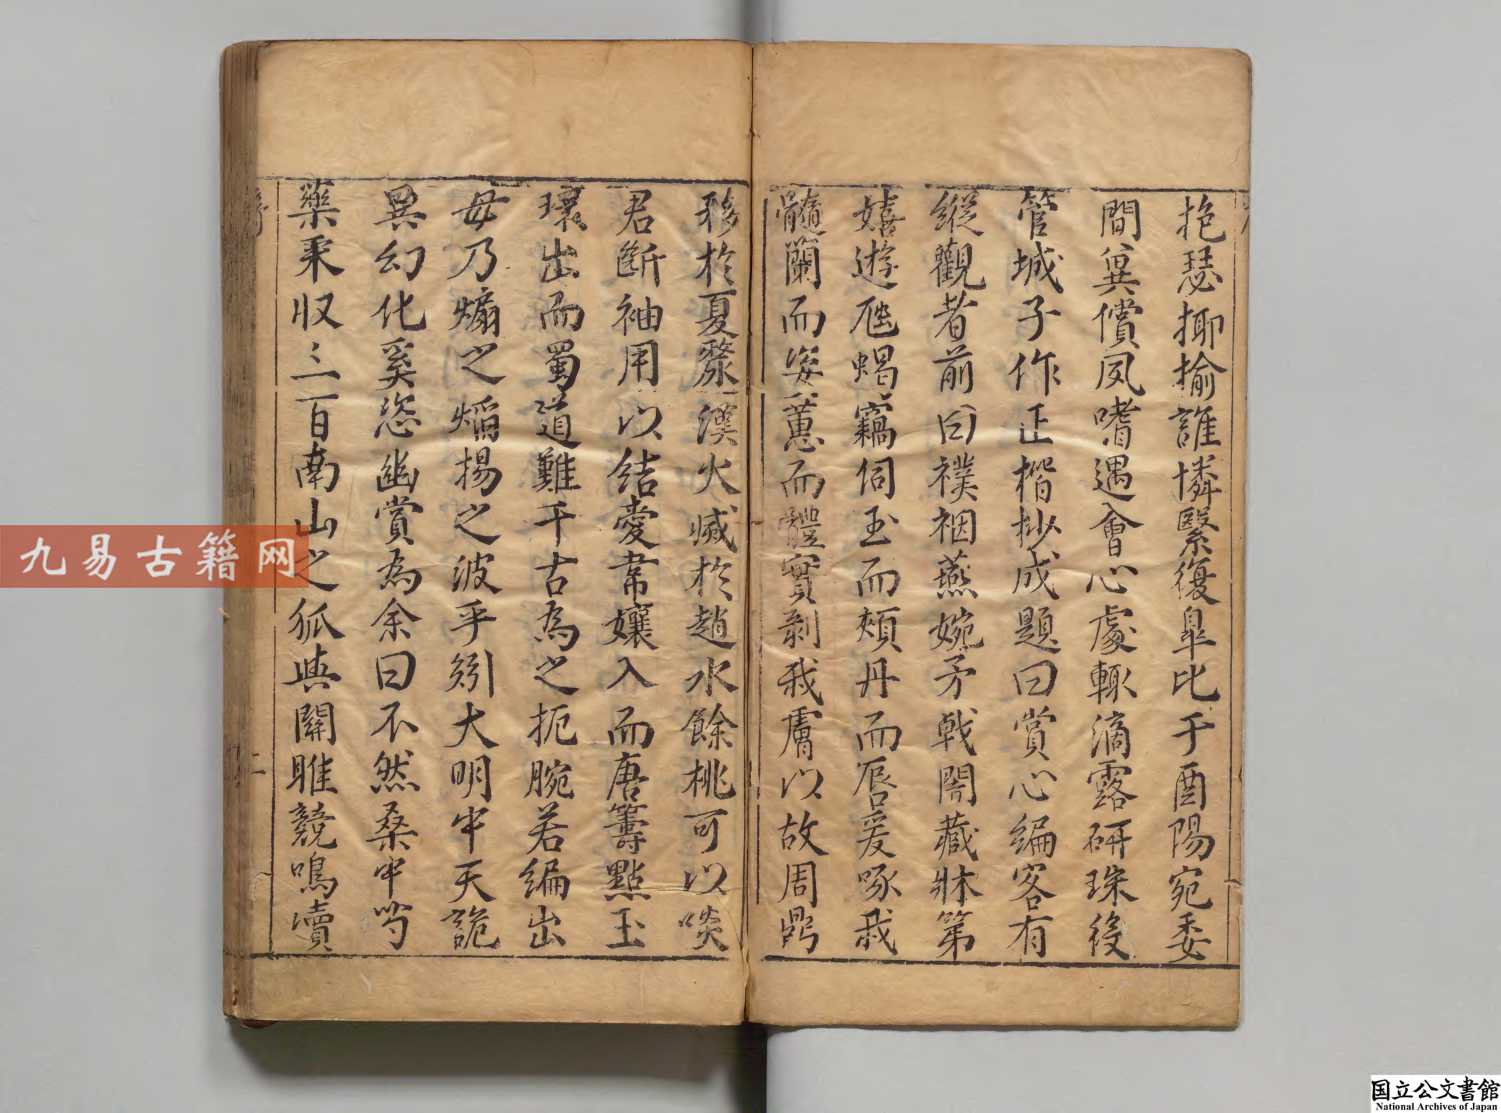 抱瑟揶揄誰憐緊復皐比于酉陽宛委
間異償夙嗜遇會心處輒滴露研珠後
管城子作正楷抄成題曰賞心編客有
縱觀者前曰襆裍燕婉矛戟闇藏牀第
嬉遊虺蝎竊伺玉而頰丹而唇爰啄我
髓蘭而姿蕙而體實剝我膚以故周鼎
移於夏漦漢火滅於趙水餘桃可以啖
君斷袖用以結愛韋孃入而唐籌點玉
環出而蜀道難千古為之扼腕若編出
毋乃煽之熖揚之波乎矧大明中天詭
異幻化奚恣幽賞為余曰不然桑中芍
藥采收三百南山之狐與關雎競鳴讀
二
九易古籍网
国立公文書館
National Archives of Japan